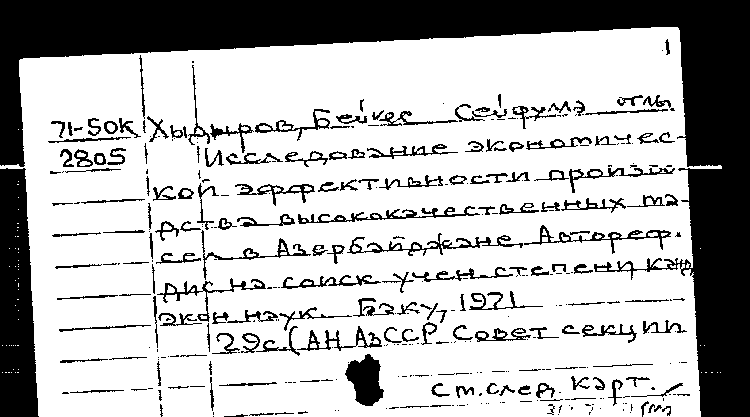 1
71-50K Хыдыров, Бейкес Сейфулла оглы.
2805 Исследование экономичес-
кой эффективности произво-
дства высококачественных ма-
сел в Азербайджане. Автореф.
дис. на соиск учен. степени канд
экон. наук. Баку, 1971
29с (АН АзССР. Совет секции
см. след. карт.